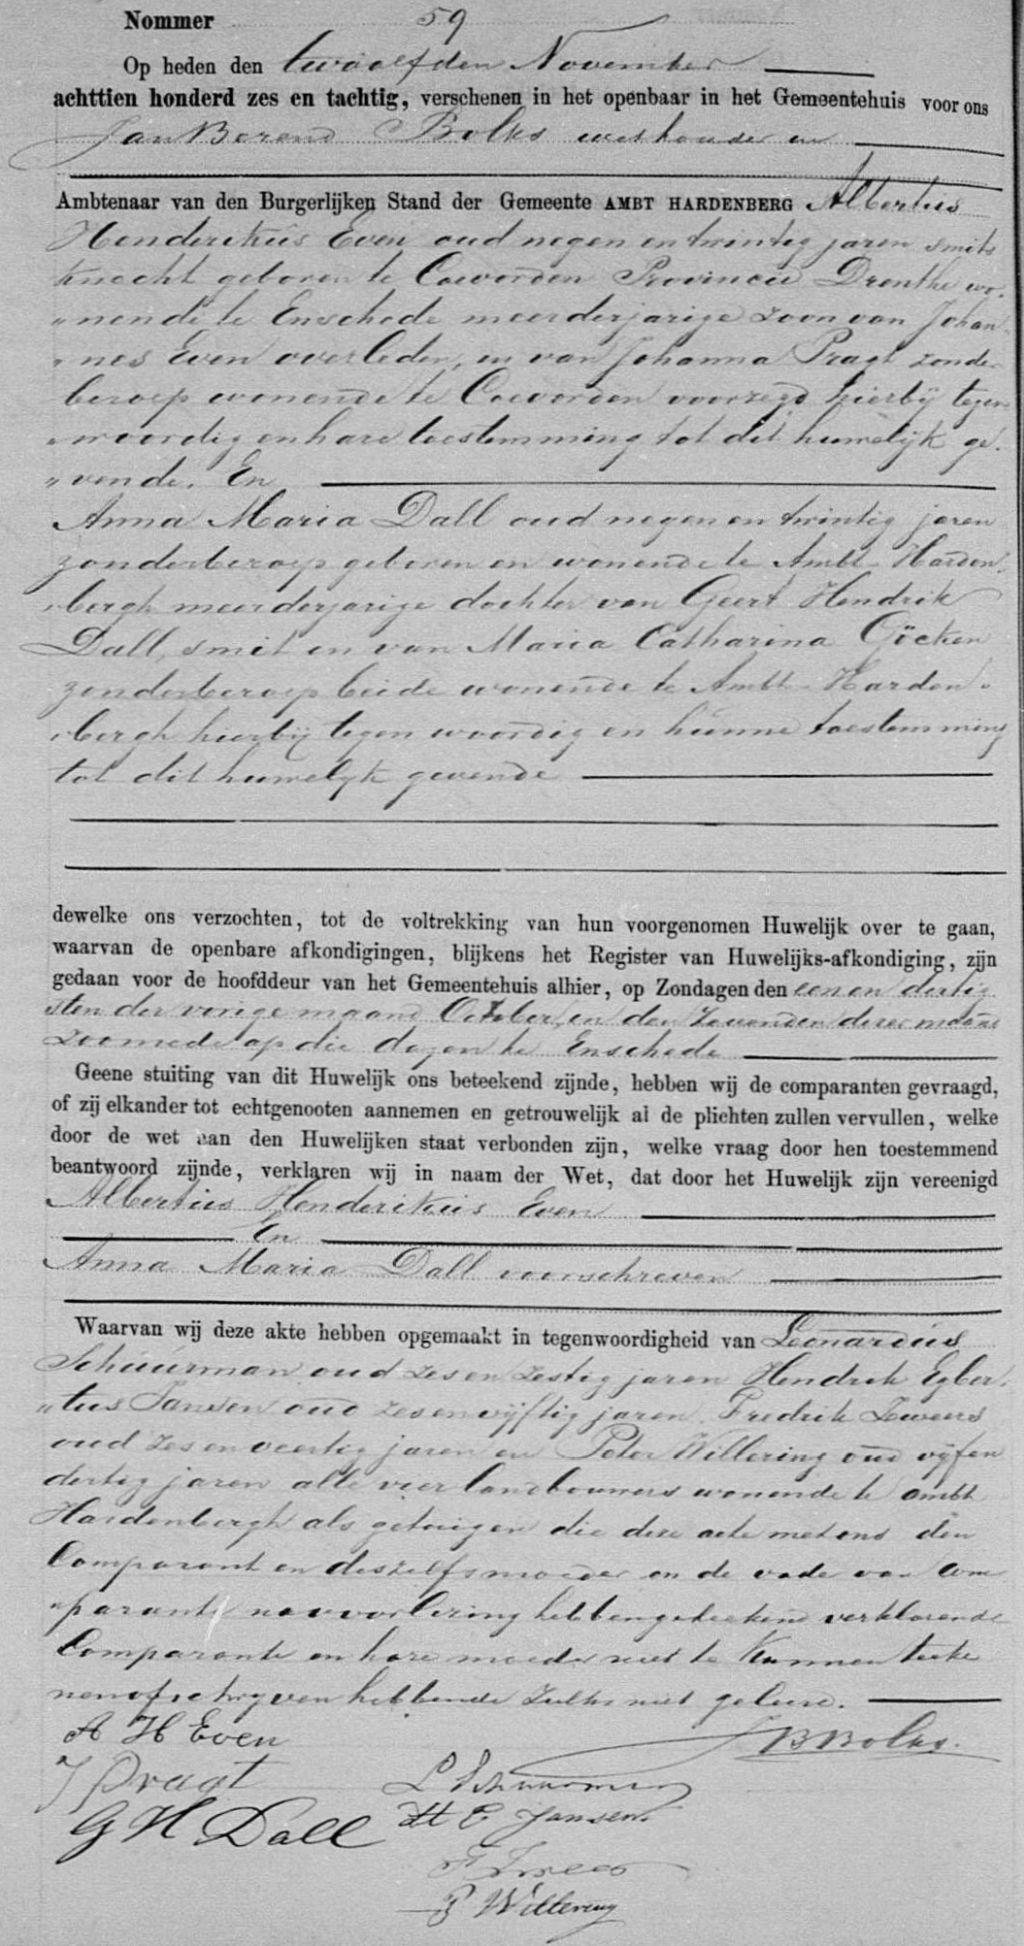 Nommer 59
Op heden den twaalfden November
achttien honderd zes en tachtig, verschenen in het openbaar in het Gemeentehuis voor ons
Jan Berend Bolks wethouder en
Ambtenaar van den Burgerlijken Stand der Gemeente AMBT HARDENBERG Albertus
Henderikus Even oud negen en twintig jaren smits
knecht geboren te Coevorden Provincie Drenthe wo
„nende te Enschede meerderjarige zoon van Johan
„nes Even overleden, en van Johanna Pragt zonder
beroep wonende te Coevorden voorzegd hierbij tegen
„woordig en hare toestemming tot dit huwelijk ge
„vende. En
Anna Maria Dall oud negen en twintig jaren
zonder beroep geboren en wonende te Ambt-Harden
„bergh meerderjarige dochter van Geert Hendrik
Dall, smit en van Maria Catharina
zonder beroep beide wonende te Ambt-Harden
„bergh hierbij tegenwoordig en hunne toestemming
tot dit huwelijk gevende
dewelke ons verzochten, tot de voltrekking van hun voorgenomen Huwelijk over te gaan,
waarvan de openbare afkondigingen, blijkens het Register van Huwelijks-afkondiging, zijn
gedaan voor de hoofddeur van het Gemeentehuis alhier, op Zondagen den een en dertig
sten der vorige maand October, en den zevenden dezer maand
zoomede op die dagen te Enschede
Geene stuiting van dit Huwelijk ons beteekend zijnde, hebben wij de comparanten gevraagd,
of zij elkander tot echtgenooten aannemen en getrouwelijk al de plichten zullen vervullen, welke
door de wet aan den Huwelijken staat verbonden zijn, welke vraag door hen toestemmend
beantwoord zijnde, verklaren wij in naam der Wet, dat door het Huwelijk zijn vereenigd
Albertus Henderikus Even
En
Anna Maria Dall voorschreven
Waarvan wij deze akte hebben opgemaakt in tegenwoordigheid van Leonardus
Schuurman oud zes en zestig jaren Hendrik Egber
„tus Jansen oud zes en vijftig jaren, Fredrik
oud zes en veertig jaren en Peter Willering oud vijf en
dertig jaren alle vier landbouwers wonende te ambt
Hardenbergh als getuigen die deze acte met ons den
Comparant en deszelfs moeder en de vader van Com
„parante na voorlezing hebben geteekend verklarende
Comparante en hare moeder niet te kunnen teeke
nen of schryven hebbende zulks niet geleerd.
A H Even
JBBolks.
J Pragt
L Schuurman
G H Dall
H E Jansen
P Willering